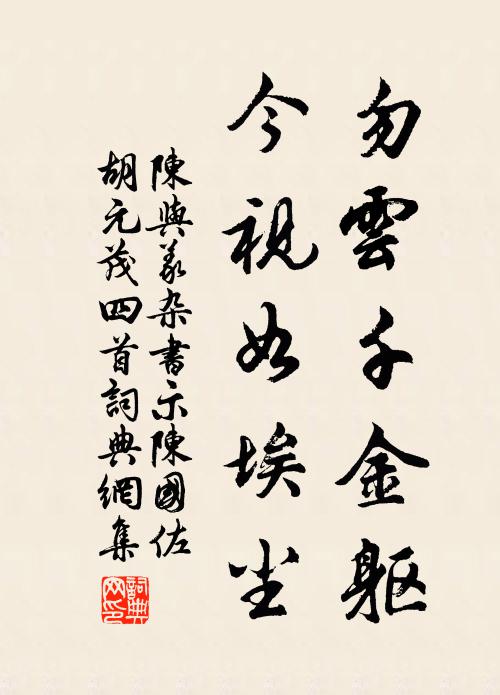 勿雲千金軀
今視如埃尘
陳與義杂書示陳國佐
胡元茂四首詞典網集
詞典网印